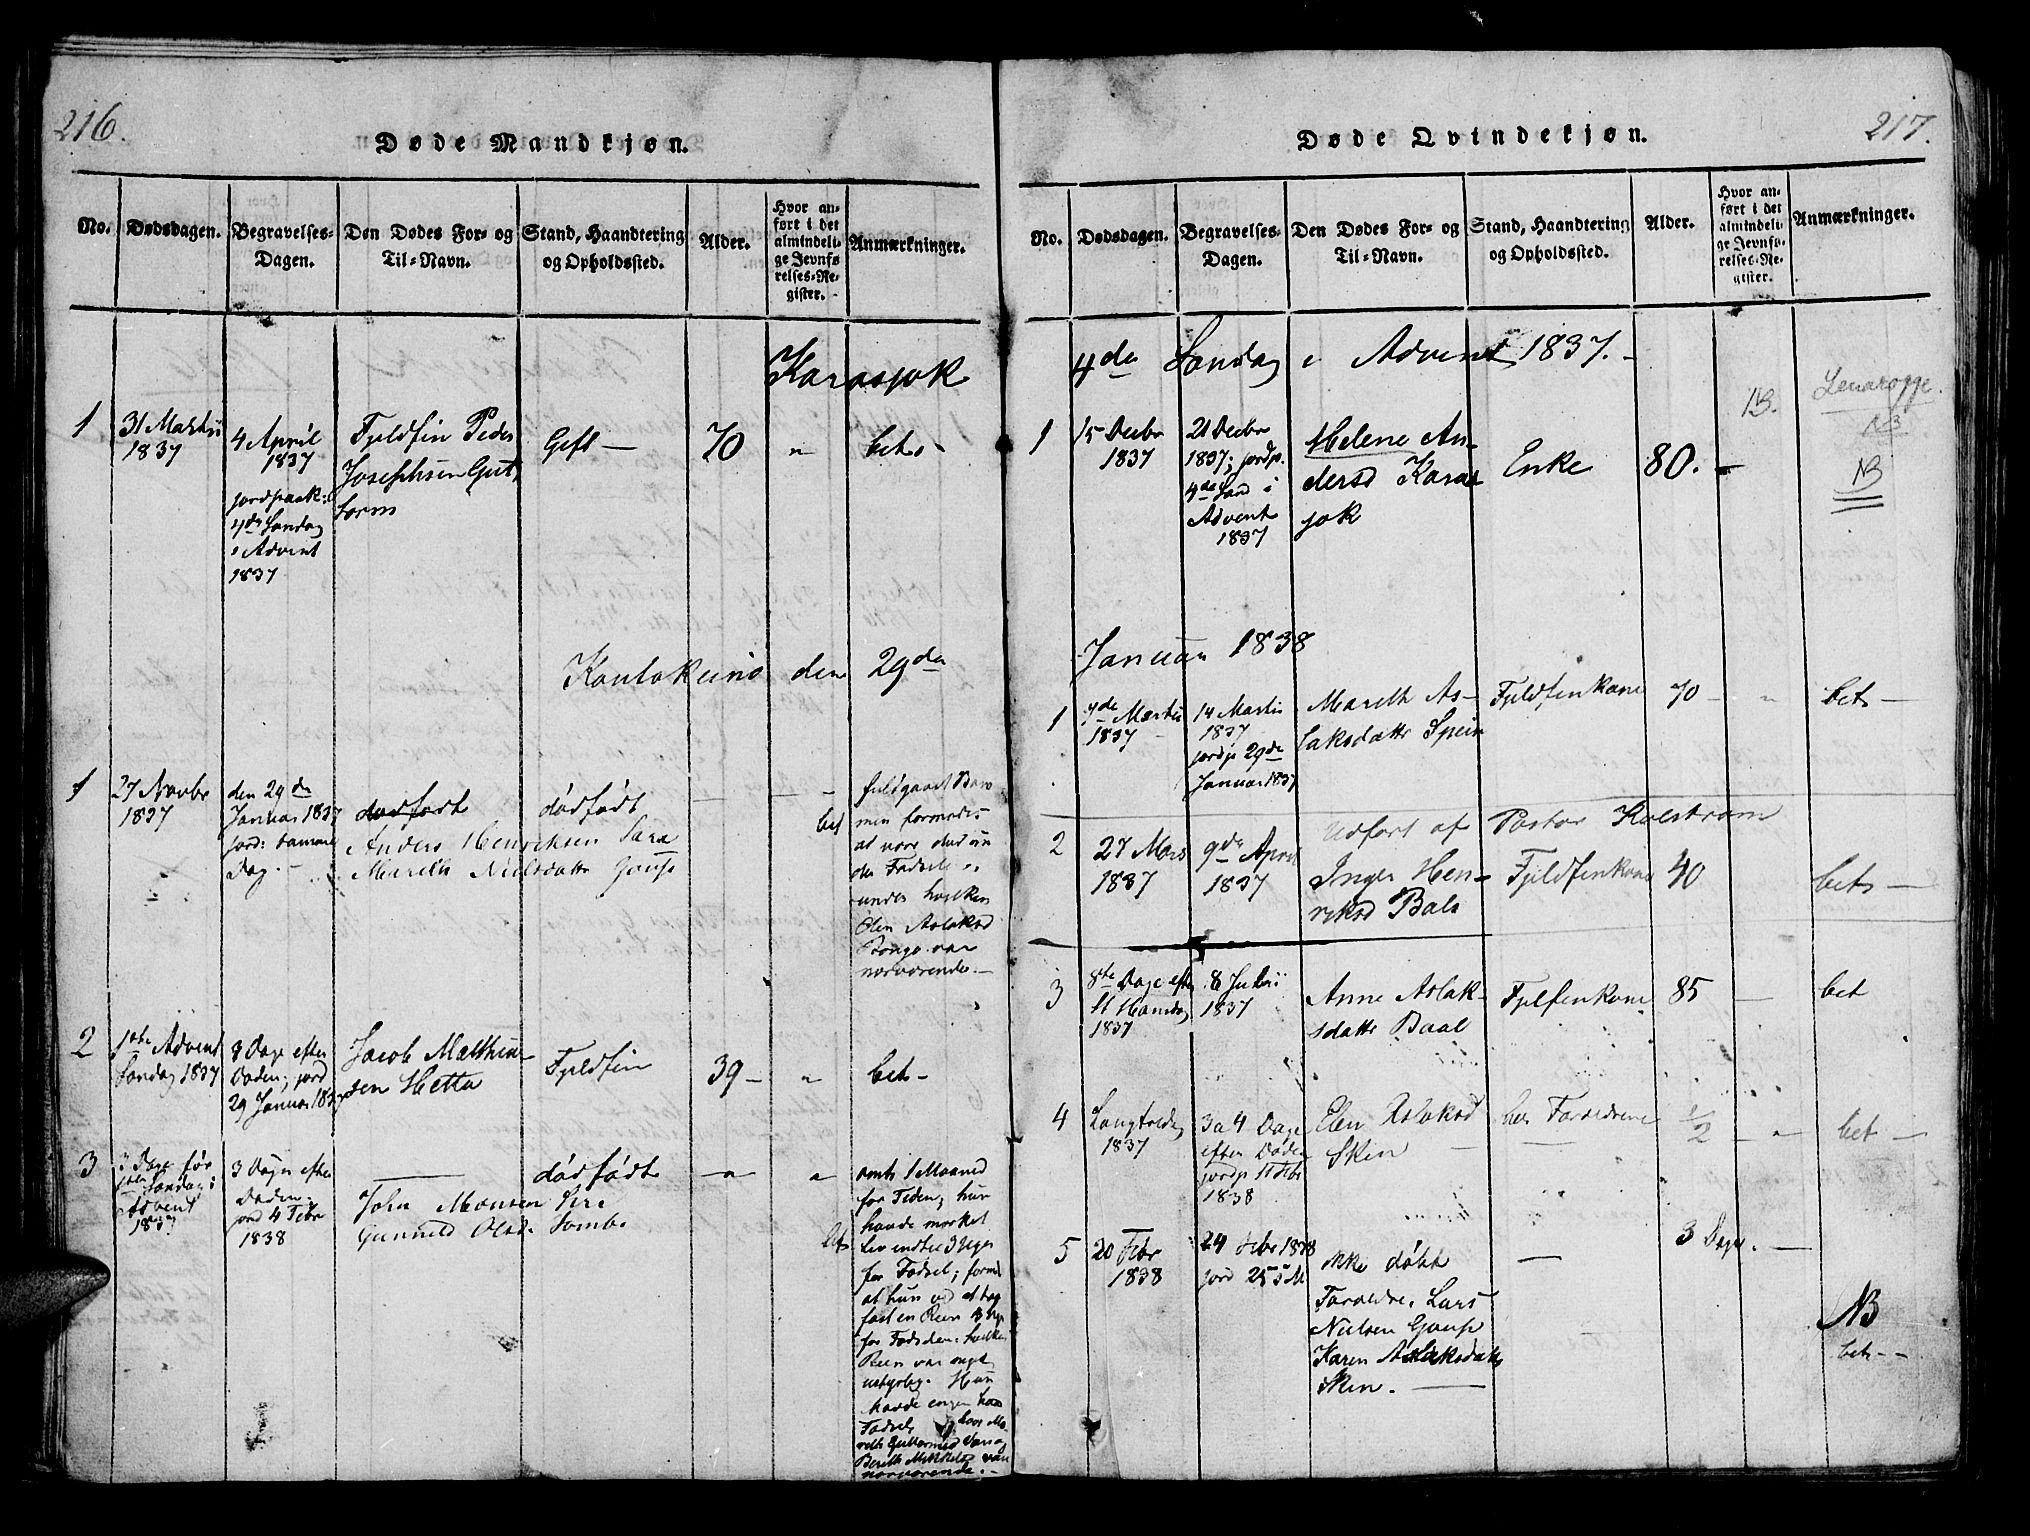 216.
Døde Mandkjøn.
No.
Dødsdagen.
Begravelses-
Dagen.
Den Dødes For- og
Til-Navn.
Stand, Haandtering
og Opholdssted.
Alder.
Hvor an-
ført i det
almindeli-
ge Jevnfø
relses-Re-
gister.
Anmærkninger.
Karasjok
1
31 Martii
1837
4 April
1837
jordpaak:
4de Søndag
i Advent
1837
Fjeldfin Peder
Josephsen Gut
torm
Gift —
70
"
bet.
Kautokeino den 29de
1
27 Novbr
1837
den 29de
Januar 1837
jord: samme
Dag. —
dødfødt
Anders Henriksen Sara
Mareth Nielsdatter Goup
dødfødt
bet
fuldgaaet Barn
men formodes
at være død un
der Fødsel
under hvilken
Elen Aslaksd
Bongo var
nærværende. —
2
1ste Advent
Søndag 1837
8 Dage efter
Døden; jord
29 Januar 1837
Jacob Matthis-
sen Hetta
Fjeldfin
39 —
"
bet —
3
3 Dage før
1ste Søndag i
Advent
1837
3 Dage efter
Døden.
jord 4 Febr
1838
dødfødt
John Monsen
Gunnild Olsd. Somb.
bet
omtr 1 Maaned
før Tiden; hun
havde mærket
Liv indtil 3 Uger
før Fødsel; formd
at hun ved at tage
fast en Reen
før Fødselen; hvilken
Reen var meget
ustyrlig. Hun
havde ingen
Fødsel,
Bereth Mikkelsd var
nærværende. —
217.
Døde Qvindekjøn.
No.
Dødsdagen.
Begravelses-
Dagen.
Den Dødes For- og
Til-Navn.
Stand, Haandtering
og Opholdssted.
Alder.
Hvor an-
ført i det
almindeli-
ge Jevnfø-
relses-Re-
gister.
Anmærkninger.
4de Søndag i Advent 1837. —
1
15 Decbr
1837
21 Decbr
1837; jordp.
4de Sønd i
Advent
1837
Helene An-
dersd Karas
jok
Enke
80. —
NB.
NB
NB
Januar 1838
1
7de Martii
1837
14 Martii
1837
jordp 29de
Januar 1837
Mareth As-
laksdatter Spein
Fjeldfinkone
70 —
"
bet —
Udført af Pastor Kolstrøm
2
27 Mars
1837
9de April
1837
Inger Hen-
riksd Bals
Fjeldfinkone
40
bet —
3
8te Dage efter
St Hansdag
1837
8 Julii
1837
Anne Aslak-
sdatter Baal
Fjelfinkone
85
bet
4
Langfredag
1837
3 a 4 Dage
efter Døden
jordp 11 Febr
1838
Elen Aslaksd
Skin
hos Forældrene
1/2
"
bet —
5
20 Febr
1838
24 Febr 1838
jord 25 s M
ikke døbt
Forældre. Lars
Nielsen Goup
Karen Aslaksdatter
Skin. —
3 Dage. —
NB
bet —